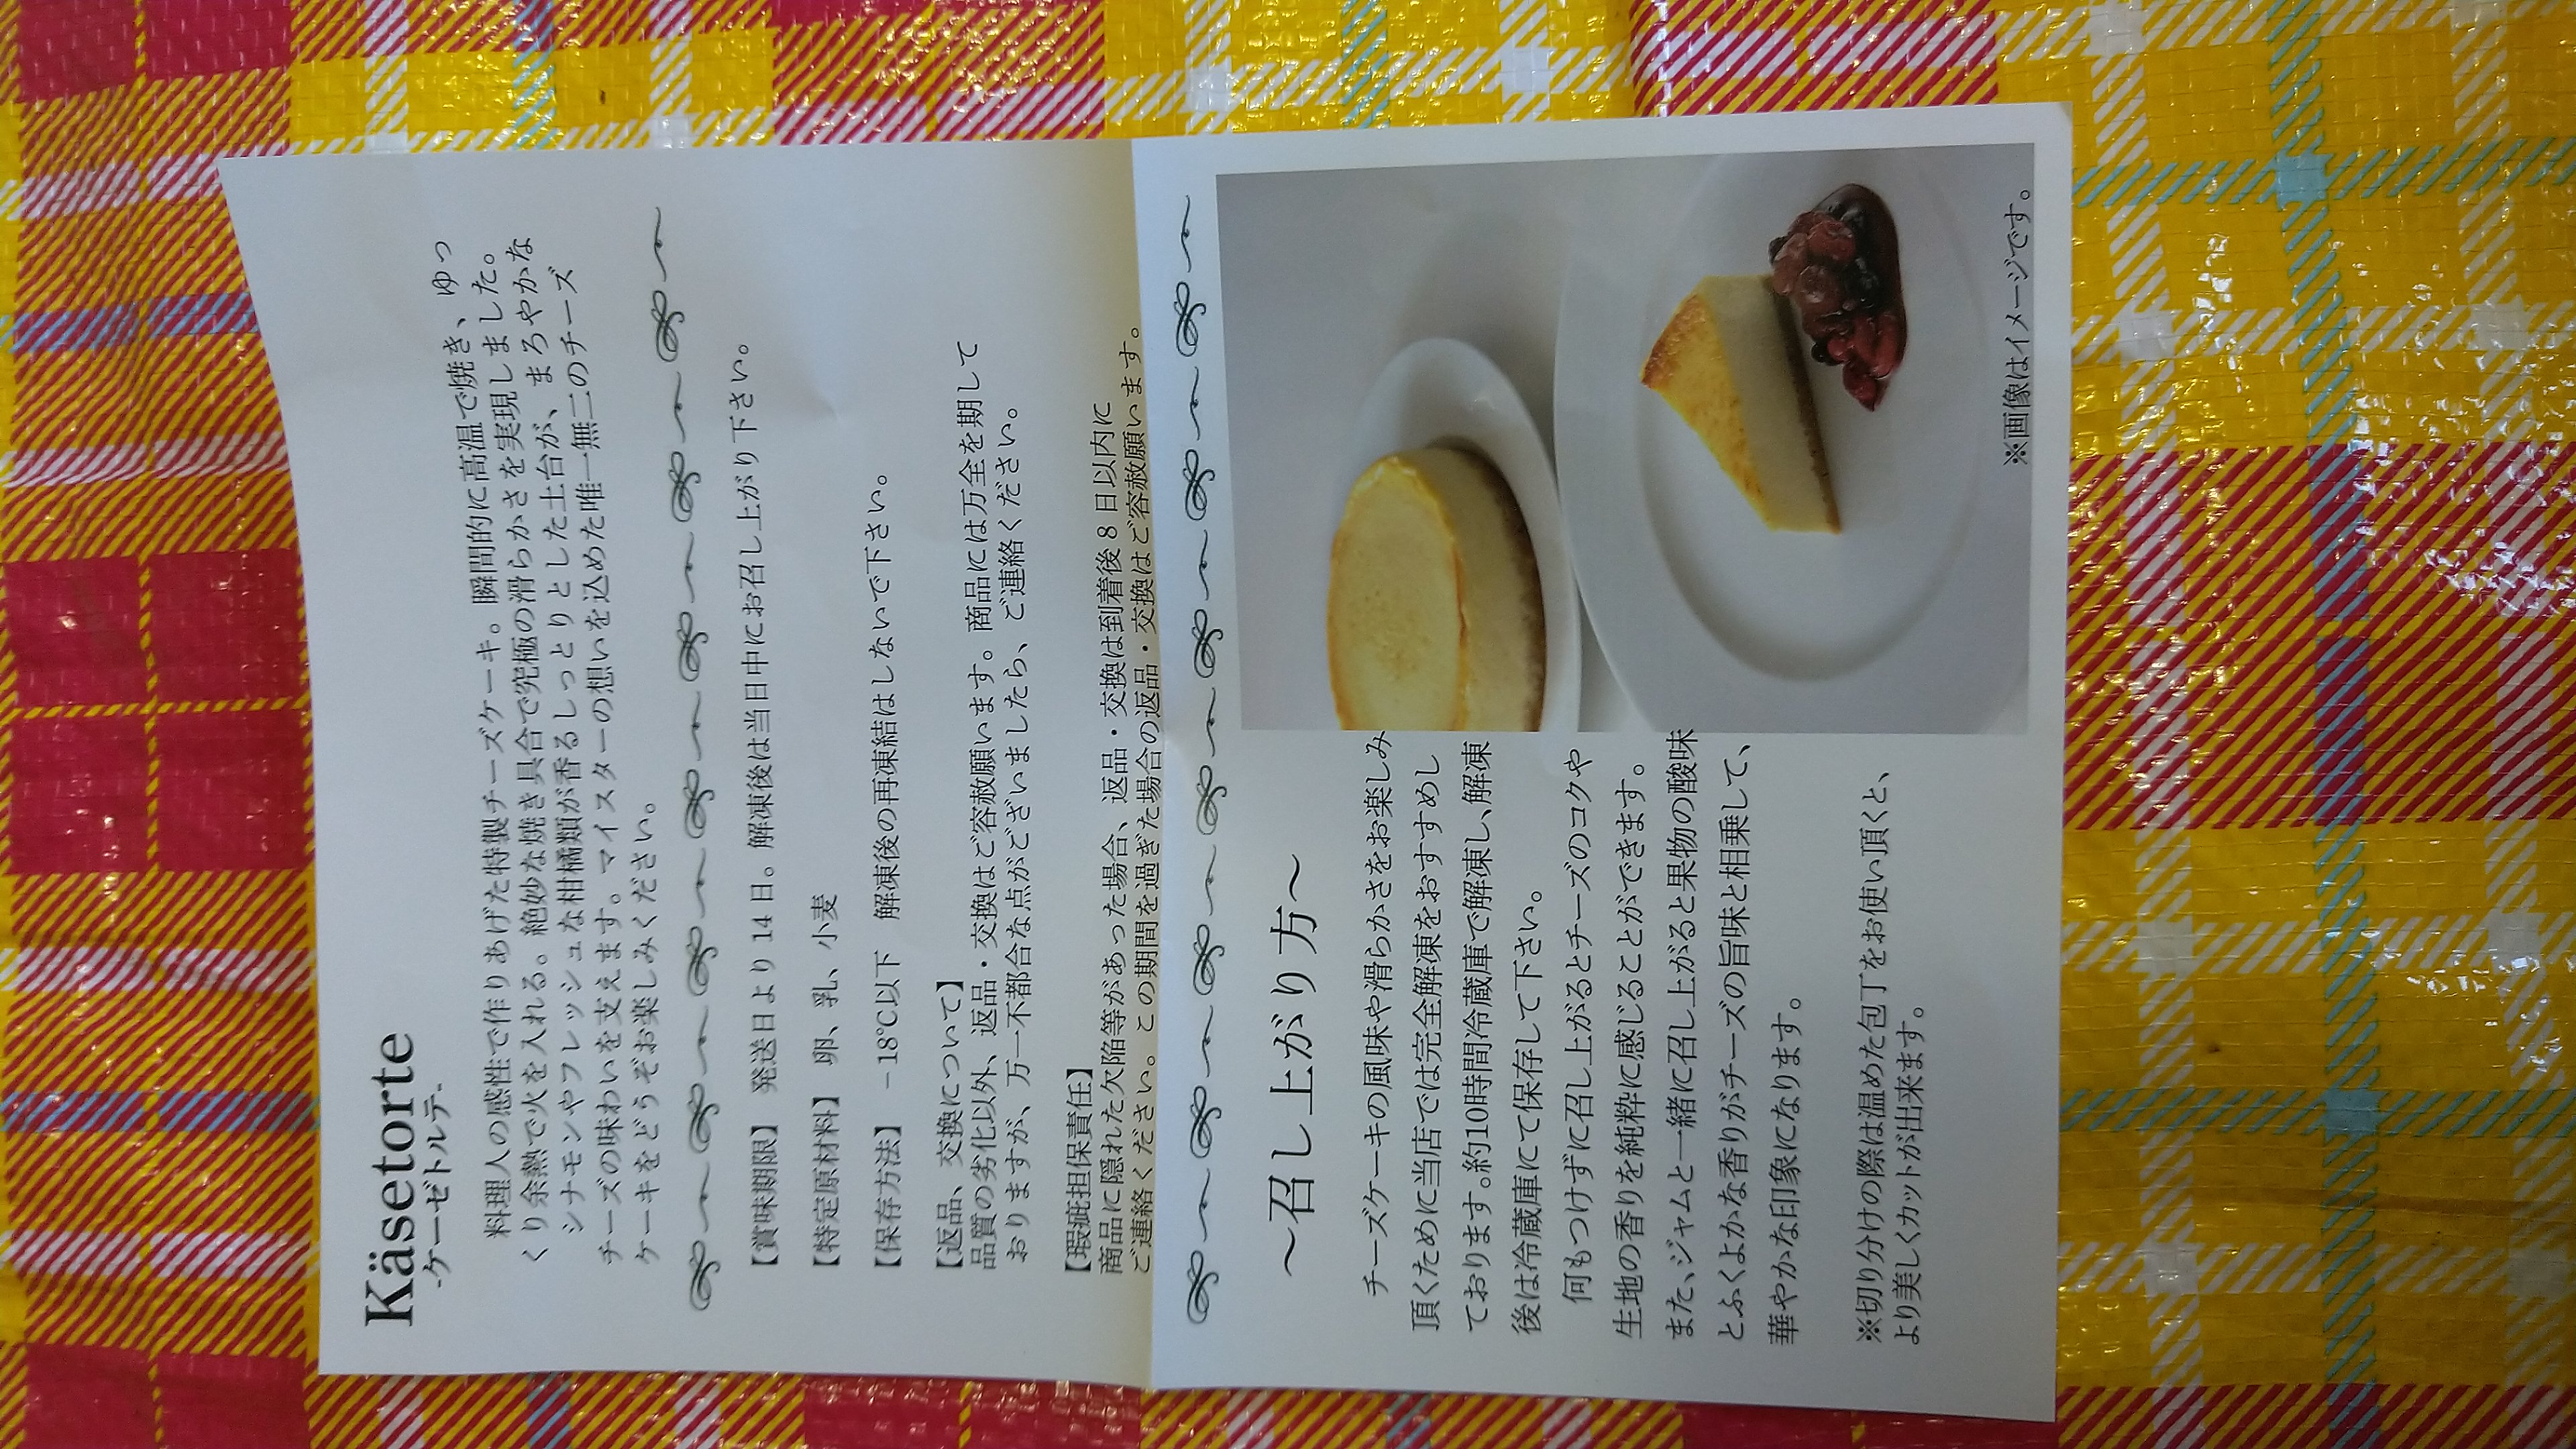 Käsetorte
-ケーゼトルテ-
料理人の感性で作りあげた特製チーズケーキ。瞬間的に高温で焼き、ゆっ
くり余熱で火を入れる。絶妙な焼き具合で究極の滑らかさを実現しました。
シナモンやフレッシュな柑橘類が香るしっとりとした土台が、まろやかな
チーズの味わいを支えます。マイスターの想いを込めた唯一無二のチーズ
ケーキをどうぞお楽しみください。
【賞味期限】 発送日より14日。解凍後は当日中にお召し上がり下さい。
【特定原材料】 卵、乳、小麦
【保存方法】 −18℃以下 解凍後の再凍結はしないで下さい。
【返品、交換について】
品質の劣化以外、返品・交換はご容赦願います。商品には万全を期して
おりますが、万一不都合な点がございましたら、ご連絡ください。
【瑕疵担保責任】
商品に隠れた欠陥等があった場合、返品・交換は到着後8日以内に
ご連絡ください。この期間を過ぎた場合の返品・交換はご容赦願います。
～召し上がり方～
チーズケーキの風味や滑らかさをお楽しみ
頂くために当店では完全解凍をおすすめし
ております。約10時間冷蔵庫で解凍し、解凍
後は冷蔵庫にて保存して下さい。
何もつけずに召し上がるとチーズのコクや
生地の香りを純粋に感じることができます。
また、ジャムと一緒に召し上がると果物の酸味
とふくよかな香りがチーズの旨味と相乗して、
華やかな印象になります。
※切り分けの際は温めた包丁をお使い頂くと、
より美しくカットが出来ます。
※画像はイメージです。